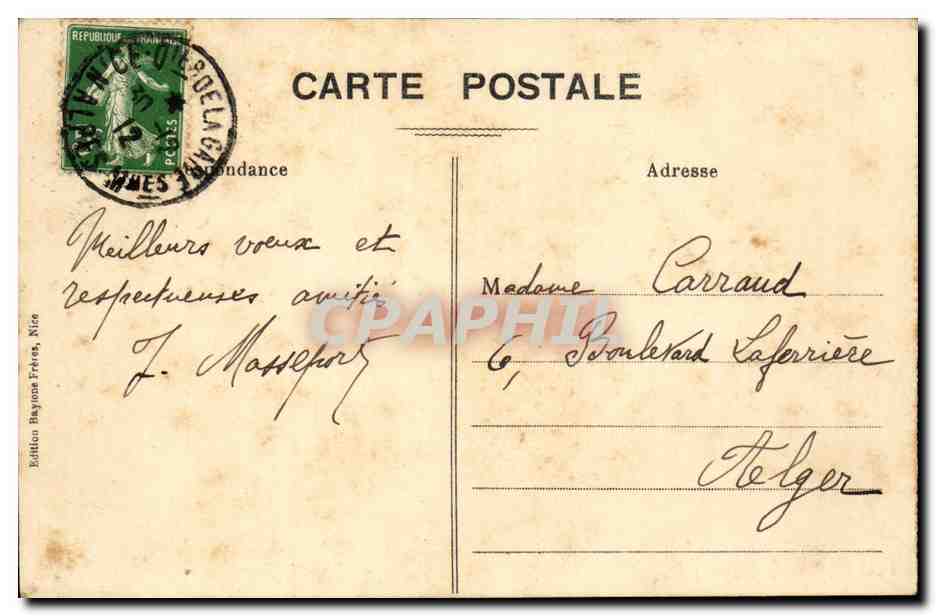 REPUBLIQUE FRANÇAISE
POSTES
NICE
DE LA GARE
12
CARTE POSTALE
Correspondance
Adresse
Meilleurs voeux et
respectueuses amitiés
J. Massefort
Madame Carraud
6, Boulevard Laferrière
Alger
CPAPHIL
Edition Baylone Frères, Nice